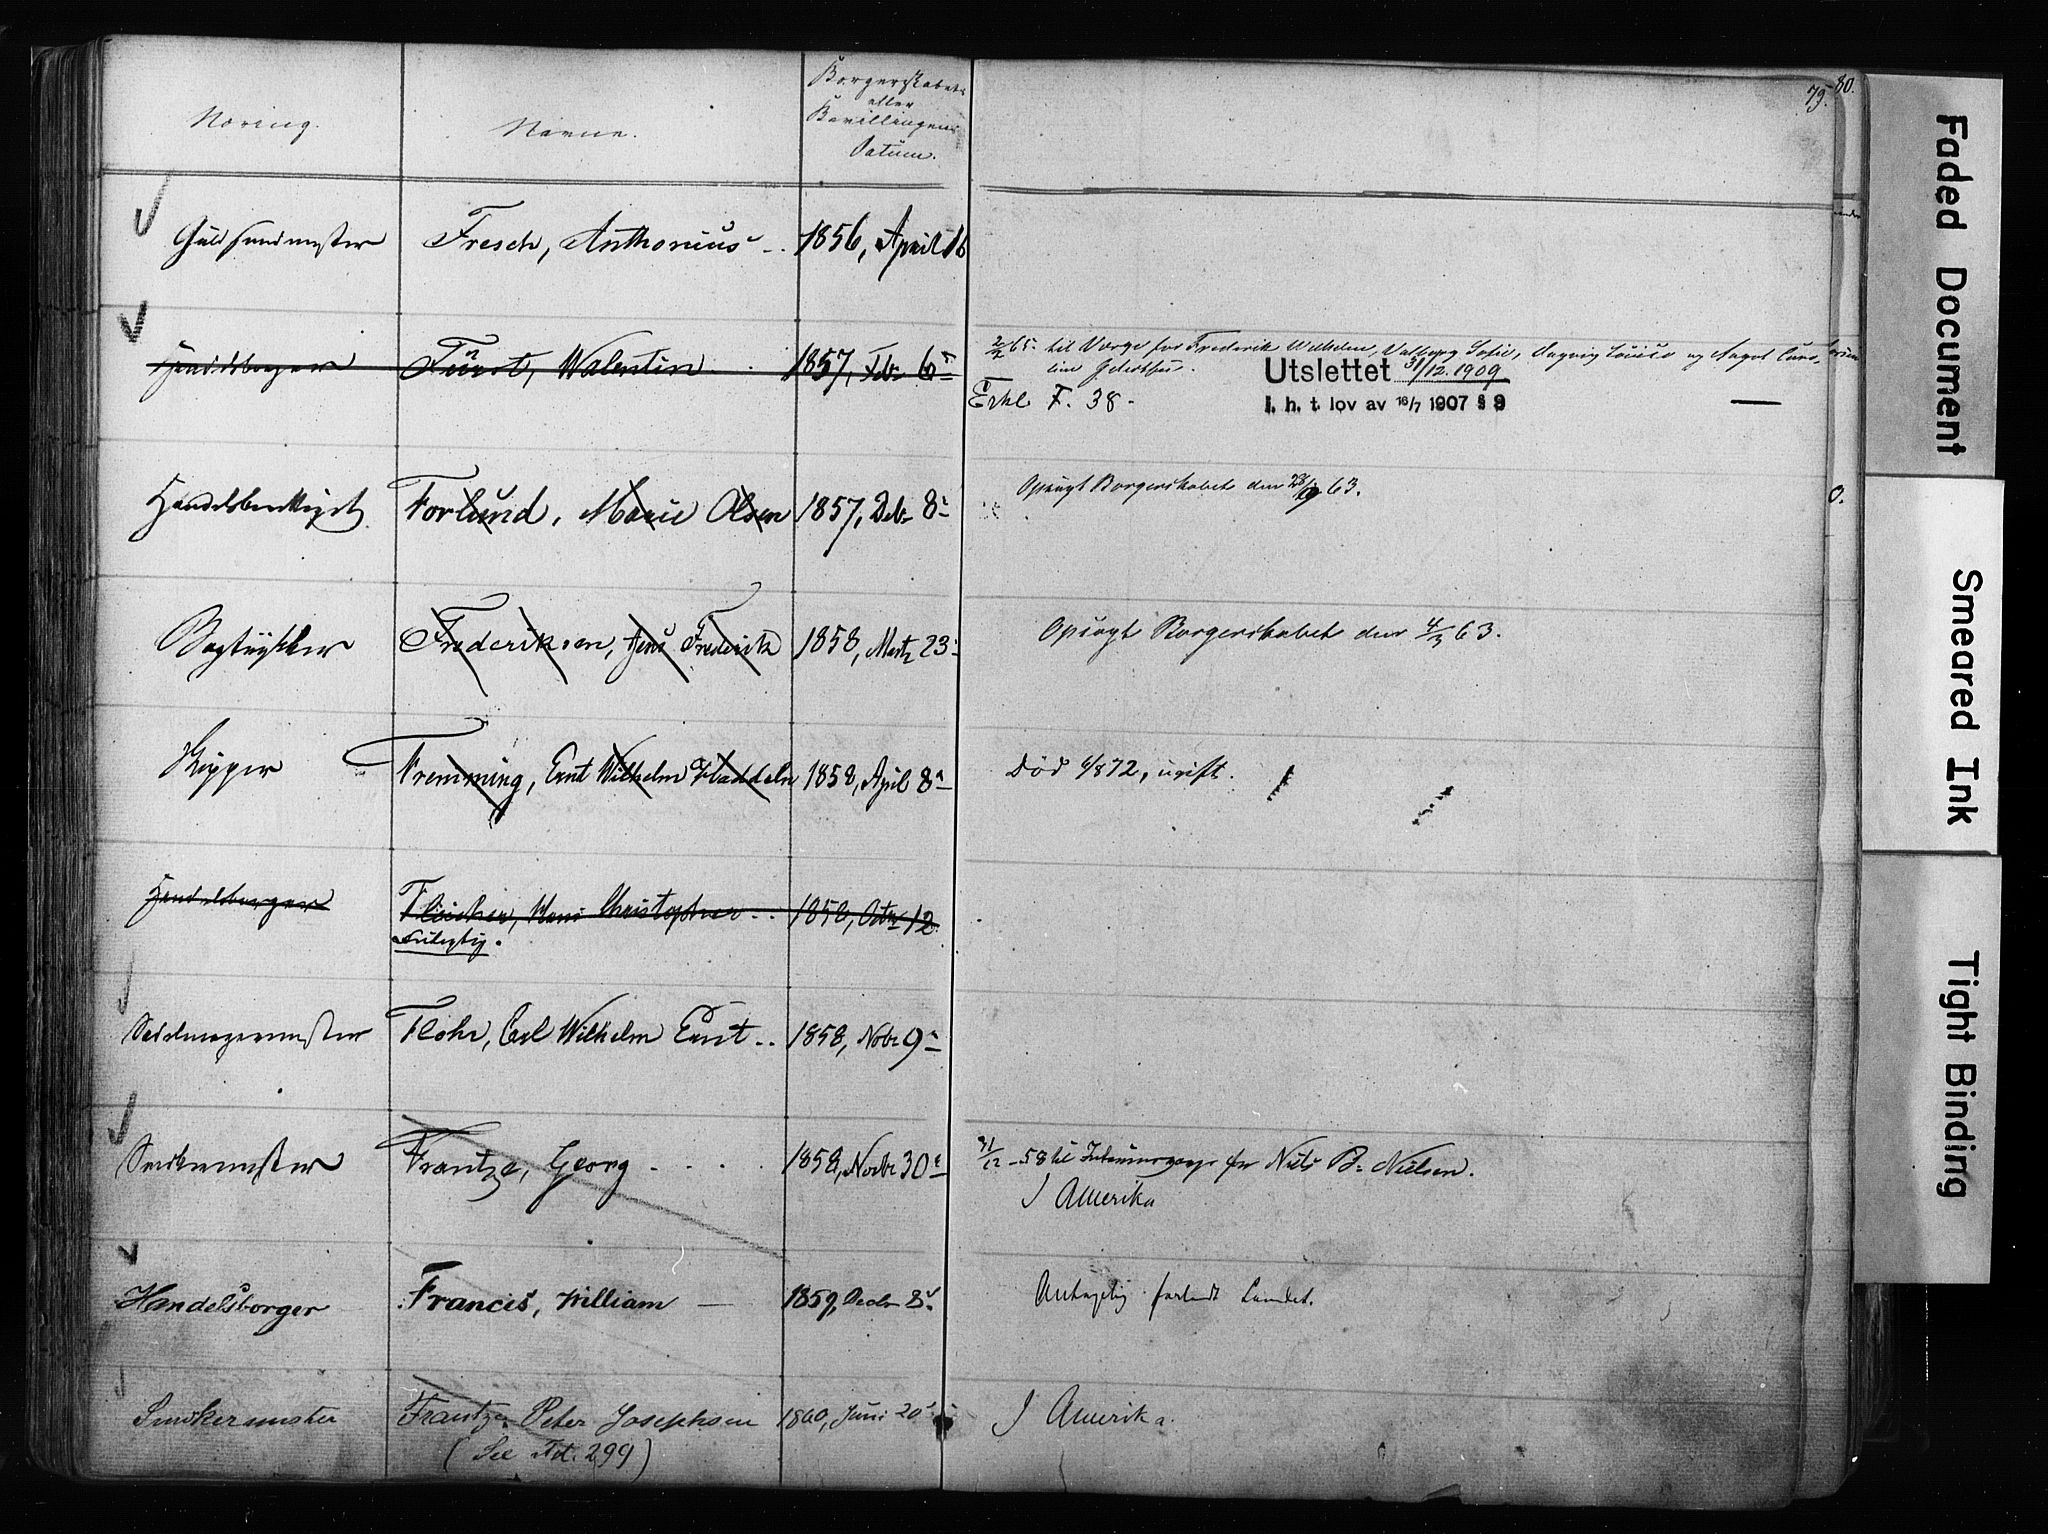 79.
80.
Næring.
Navne.
Borgerskabets
eller
Bevillingens
Datum.
Guldsmedmester Fresch, Anthonius 1856, April 16
Handelsborger Fürst, Walentin 1857, Feb 6
2/2 65 til Værge for Frederik Wilhelm, Valborg Sofie, Dagny Louise og Aagot
Utslettet 31/12. 1909
Erkl F. 38.
I. h. t. lov av 18/7 1907 § 9
Forlund, Marie Olsen 1857, Deb 8
Opsagt Borgerskabet den 63.
0.
Bogtrykker Frederiksen, Jens Frederik 1858, Marts 23
Opsagt Borgerskabet den 4/3 63.
Skipper Fremming, Ernt Wilhelm 1858, April 8
Død 4/8 72, ugift.
Handelsborger Christopher 1858, Octbr 12
Sadelmagermester Flohr, Carl Wilhelm Ernt 1858, Nobr 9
Snedkermester Frantze, Georg 1858, Novbr 30
58 til for Niels B. Nielsen.
I Amerika
Handelsborger Francis, William 1859, Decbr 8
Antagelig forladt Landet.
Snedkermester Frantze Peter Josephsen 1860, Juni 20
I Amerika.
(See Fol. 299)
Faded Document
Smeared Ink
Tight Binding